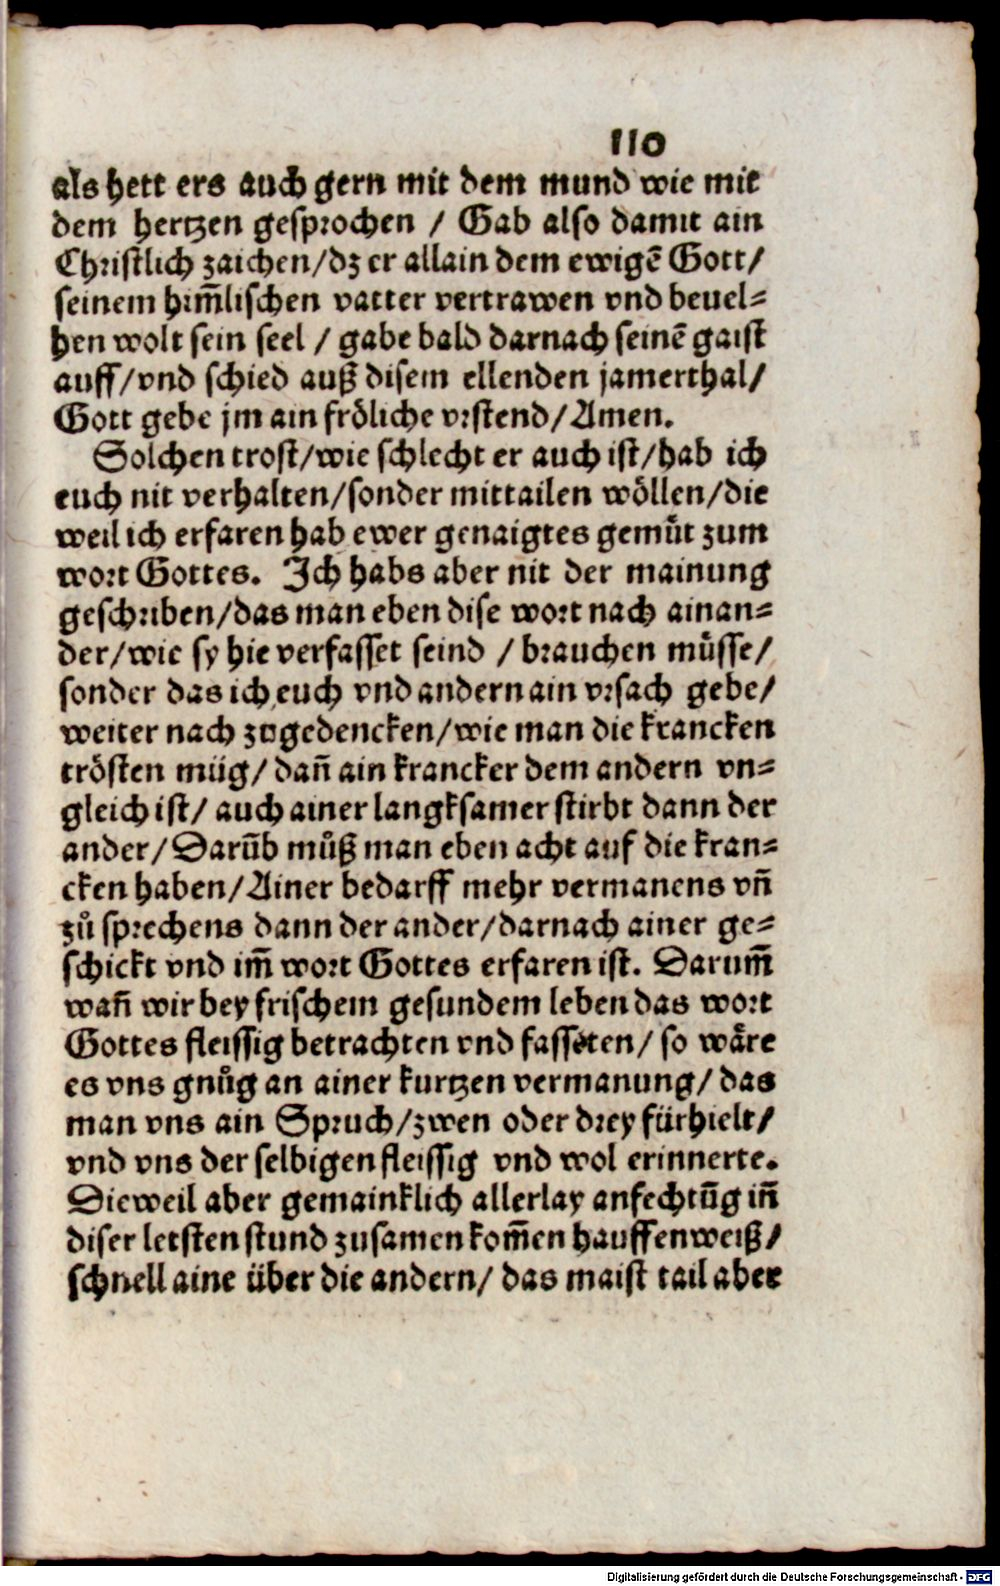 110
als hett ers auch gern mit dem mund wie mit
dem hertzen gesprochen / Gab also damit ain
Christlich zaichen/dz er allain dem ewigē Gott/
seinem him̄lischen vatter vertrawen vnd beuel=
hen wolt sein seel / gabe bald darnach seinē gaist
auff/vnd schied auß disem ellenden jamerthal/
Gott gebe jm ain fröliche vrstend/Amen.
Solchen trost/wie schlecht er auch ist/hab ich
euch nit verhalten/sonder mittailen wöllen/die
weil ich erfaren hab ewer genaigtes gemüt zum
wort Gottes. Ich habs aber nit der mainung
geschriben/das man eben dise wort nach ainan=
der/wie sy hie verfasset seind / brauchen müsse/
sonder das ich euch vnd andern ain vrsach gebe/
weiter nach zůgedencken/wie man die krancken
trösten müg/ dañ ain krancker dem andern vn=
gleich ist/ auch ainer langksamer stirbt dann der
ander/Darūb můß man eben acht auf die kran=
cken haben/Ainer bedarff mehr vermanens vñ
zů sprechens dann der ander/darnach ainer ge=
schickt vnd im̄ wort Gottes erfaren ist. Darum̄
wañ wir bey frischem gesundem leben das wort
Gottes fleissig betrachten vnd fasseten/ so wäre
es vns gnůg an ainer kurtzen vermanung/ das
man vns ain Spruch/zwen oder drey fürhielt/
vnd vns der selbigen fleissig vnd wol erinnerte.
Dieweil aber gemainklich allerlay anfechtūg iñ
diser letsten stund zusamen kom̄en hauffenweiß/
schnell aine über die andern/ das maist tail aber
Digitalisierung gefördert durch die Deutsche Forschungsgemeinschaft - DFG